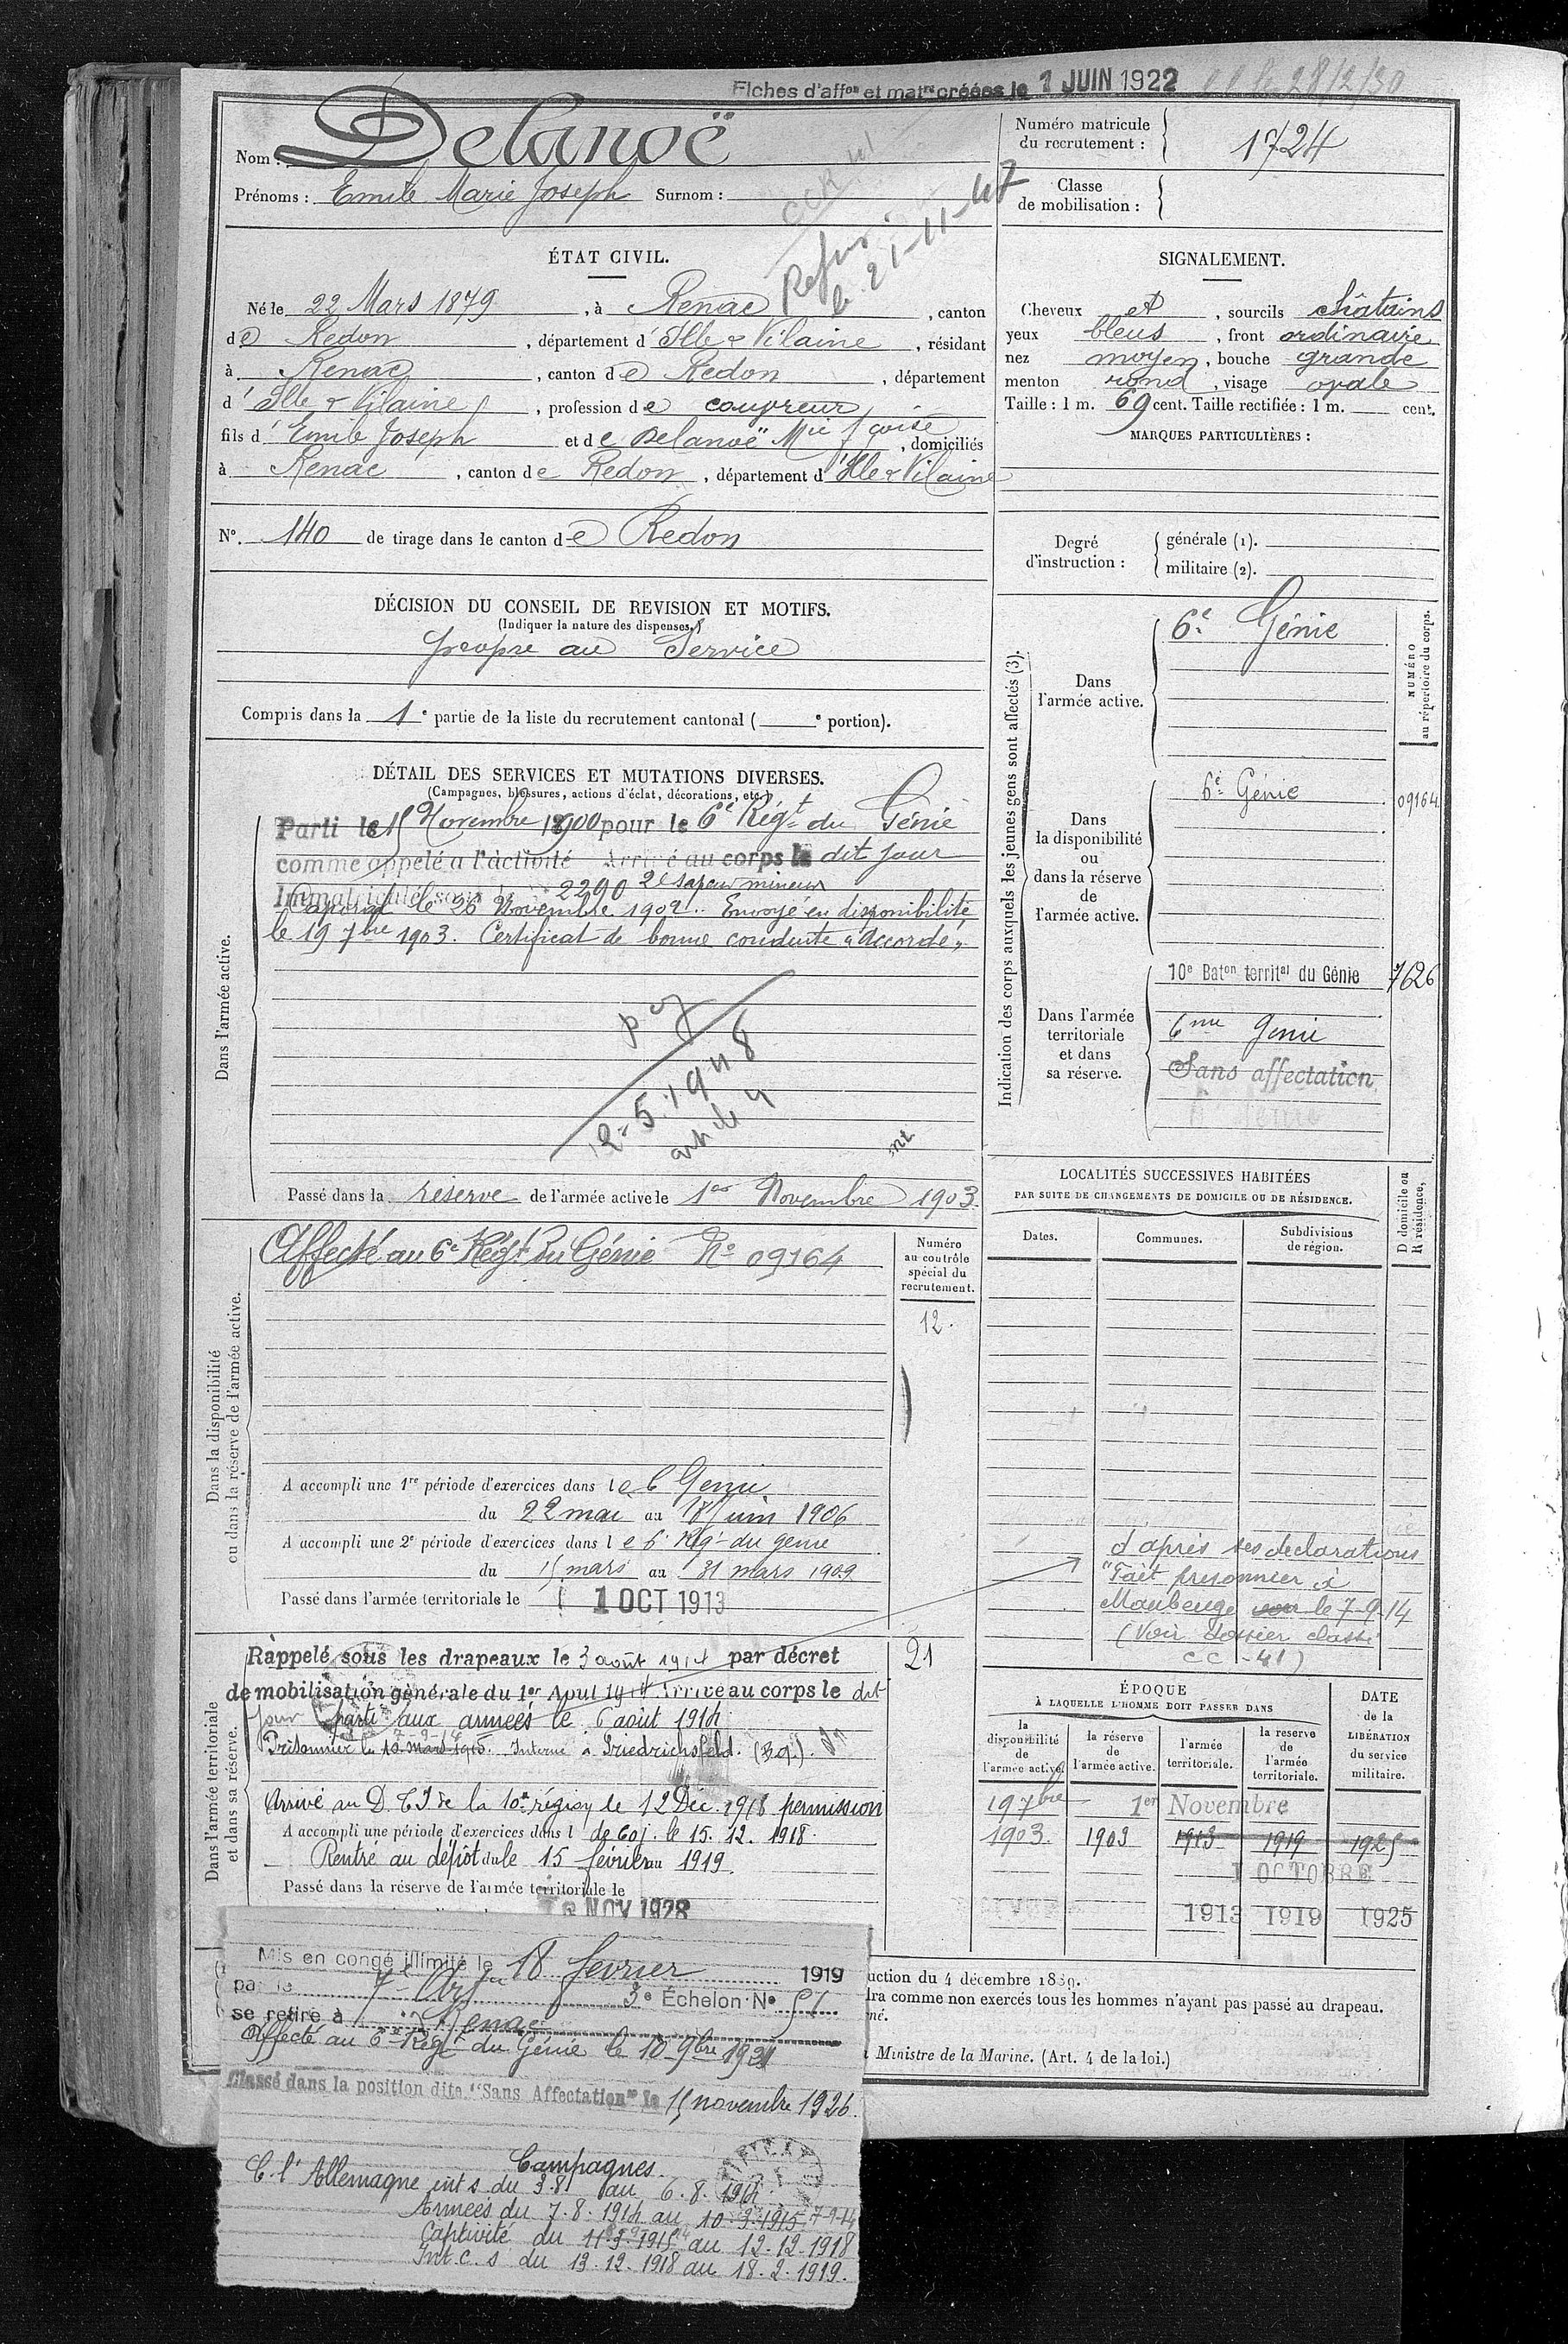 Fiches d'affon et matre créées le 1 JUIN 1922
le 28/2/30
Nom : Delanoë
Prénoms : Emile Marie Joseph Surnom :
Numéro matricule du recrutement : 1724
Classe de mobilisation :
Refus
le 21-11-47
ÉTAT CIVIL.
Né le 22 Mars 1879, à Renac, canton
de Redon, département d'Ille & Vilaine, résidant
à Renac, canton de Redon, département
d'Ille & Vilaine, profession de couvreur
fils d'Emile Joseph et de Delanoë Mie fçoise, domiciliés
à Renac, canton de Redon, département d'Ille & Vilaine
N°. 140 de tirage dans le canton de Redon
SIGNALEMENT.
Cheveux et, sourcils châtains
yeux bleus, front ordinaire
nez moyen, bouche grande
menton rond, visage ovale
Taille : 1 m. 69 cent. Taille rectifiée : 1 m. cent.
MARQUES PARTICULIÈRES :
Degré d'instruction :
générale (1).
militaire (2).
DÉCISION DU CONSEIL DE REVISION ET MOTIFS.
(Indiquer la nature des dispenses.)
propre au Service
Compris dans la 1e partie de la liste du recrutement cantonal ( e portion).
Indication des corps auxquels les jeunes gens sont affectés (3).
NUMÉRO au répertoire du corps.
Dans l'armée active.
6e Génie
Dans la disponibilité ou dans la réserve de l'armée active.
6e Génie 09164
Dans l'armée territoriale et dans sa réserve.
10e Baton territal du Génie 7626
6me Genie
Sans affectation
DÉTAIL DES SERVICES ET MUTATIONS DIVERSES.
(Campagnes, blessures, actions d'éclat, décorations, etc.)
Dans l'armée active.
Parti le 15 Novembre 1900 pour le 6e Régt du Génie
comme appelé a l'activité Arrivé au corps le dit jour
Immatriculé sous le n° 2290 2e sapeur mineur
Caporal le 26 Novembre 1902. Envoyé en disponibilité
le 19 7bre 1903. Certificat de bonne conduite "Accordé"
12-5-1948
article 4
Passé dans la réserve de l'armée active le 1er Novembre 1903.
Dans la disponibilité ou dans la réserve de l'armée active.
Affecté au 6e Régt du Génie No 09164
Numéro au contrôle spécial du recrutement.
12.
A accompli une 1re période d'exercices dans le 6 Genie
du 22 mai au 18 Juin 1906
A accompli une 2e période d'exercices dans le 6e Régt du genie
du 15 mars au 31 mars 1909
Passé dans l'armée territoriale le 1 OCT 1913
LOCALITÉS SUCCESSIVES HABITÉES
PAR SUITE DE CHANGEMENTS DE DOMICILE OU DE RÉSIDENCE.
Dates. Communes. Subdivisions de région. D domicile ou R résidence,
d'après ses declarations
"Fait prisonnier à
Maubeuge le 7-9-14
(Voir dossier classé
CC -41)
Dans l'armée territoriale et dans sa réserve.
Rappelé sous les drapeaux le 3 août 1914 par décret
de mobilisation générale du 1er Aout 1914 Arrivé au corps le dit
jour parti aux armées le 6 août 1914
Prisonnier le 10 mars 1915. Interné à Friedrichsfeld.
21
Arrivé au D. C. I de la 10e région le 12 Déc. 1918 permission
A accompli une période d'exercices dans l de 60 j. le 15. 12. 1918.
Rentré au dépôt du le 15 février au 1919.
Passé dans la réserve de l'armée territoriale le
NOV 1928
ÉPOQUE
À LAQUELLE L'HOMME DOIT PASSER DANS
la disponibilité de l'armée active. la réserve de l'armée active. l'armée territoriale. la réserve de l'armée territoriale. DATE de la LIBÉRATION du service militaire.
19 7bre 1er Novembre
1903. 1903 1913 1919 1925
1 OCTOBRE
1913 1919 1925
Mis en congé illimité le 18 fevrier 1919
par le
3e Échelon No 51
se retire à Renac
Affecté au 6e Régt du Génie le 10 9bre 1921
Classé dans la position dite "Sans Affectation" le 15 novembre 1926.
Campagnes.
C. l'Allemagne int s. du 3.8 au 6.8.1914
Armées du 7.8.1914 au 10-3-1915 7-9-14
Captivité du 11-3-1915 au 12-12-1918
Int. c. s du 13.12.1918 au 18.2.1919.
uction du 4 décembre 1889.
dra comme non exercés tous les hommes n'ayant pas passé au drapeau.
né.
Ministre de la Marine. (Art. 4 de la loi.)